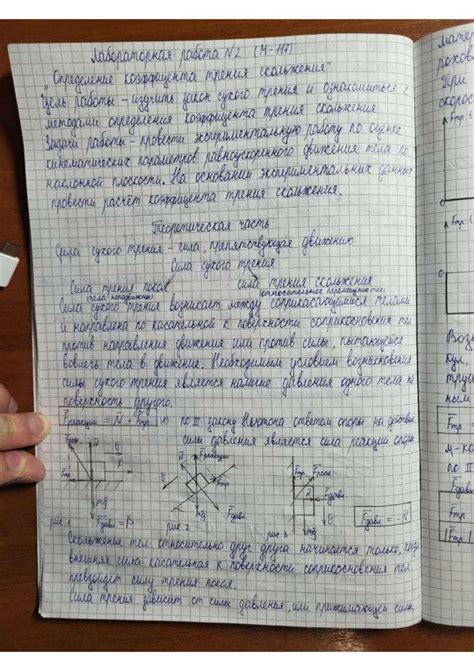 Лабораторная работа №2 (М-117)
"Определение коэффицента трения скольжения"
Цель работы - изучить закон сухого трения и ознакомиться с
методами определения коэффицента трения скольжения
Задачи работы - провести экспериментальную работу по оценке
кинематических параметров равноускоренного движения тела по
наклонной плоскости. На основании экспериментальных данных
провести расчёт коэффицента трения скольжения.
Теоретическая часть
Сила сухого трения - сила, препятствующая движению
Сила сухого трения
Сила трения покоя сила трения скольжения
(тела неподвижны) (относительное перемещение тел)
Сила сухого трения возникает между соприкасающимися телами
и направлена по касательной к поверхности соприкосновения тел
против направления движения или против силы, пытающейся
вовлечь тела в движение. Необходимым условием возникновения
силы сухого трения является наличие давления одного тела на
поверхность другого.
Fреакции = N + Fтр (1) по III закону Ньютона ответом опоры на действие
силы давления является сила реакции опоры
Fреакции
Fреак
N
Fтр
F
mg
Fдавл = P
Fдавл
Fдавл = -N
рис. 1 рис. 2 рис. 3
Скольжение тел относительно друг друга начинается только, когда
внешняя сила касательная к поверхности соприкосновения тел
превзойдёт силу трения покоя.
Сила трения зависит от силы давления, или прижимающей силы,